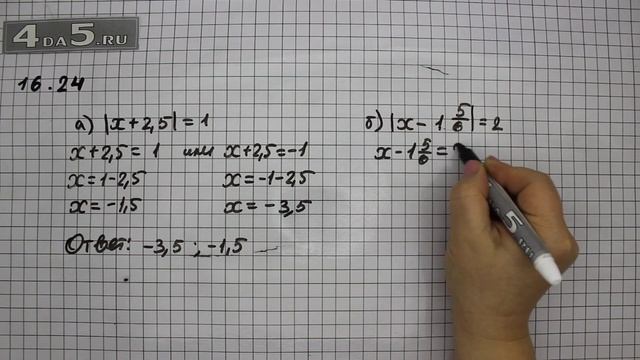 4да5.ru
16.24
а) |x+2,5|=1
x+2,5=1 или x+2,5=-1
x=1-2,5 x=-1-2,5
x=-1,5 x=-3,5
Ответ: -3,5 ; -1,5
б) |x-1 5/6|=2
x-1 5/6=
5